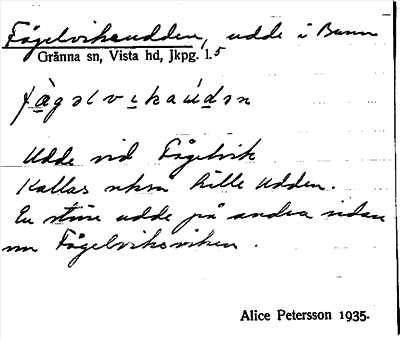 Fågelviksudden, udde i Bunn
Gränna sn, Vista hd, Jkpg. l.5
fàgəlvikaúdən
Udde vid Fågelvik
Kallas också Lille Udden.
En större udde på andra sidan
om Fågelviksviken.
Alice Petersson 1935.